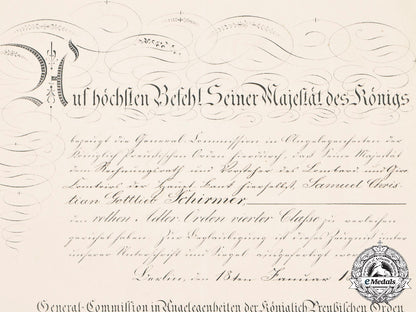 Auf höchsten Befehl Seiner Majestät des Königs
bezeugt die General-Commission in Angelegenheiten der
Königlich Preußischen Orden hierdurch, daß Seine Majestät
dem Rechnungsrath und Vorsteher des Lombard und
der Haupt Bank hierselbst, Samuel Chris
tian Gottlieb Schirmer
den rothen Adler Orden vierter Classe zu verleihen
geruhet haben. Zur Beglaubigung ist dieses Zeugniß unter
unserer Unterschrift und Siegel ausgefertigt worden
Berlin, den 18ten Januar
General-Commission in Angelegenheiten der Königlich Preußischen Orden
eMedals